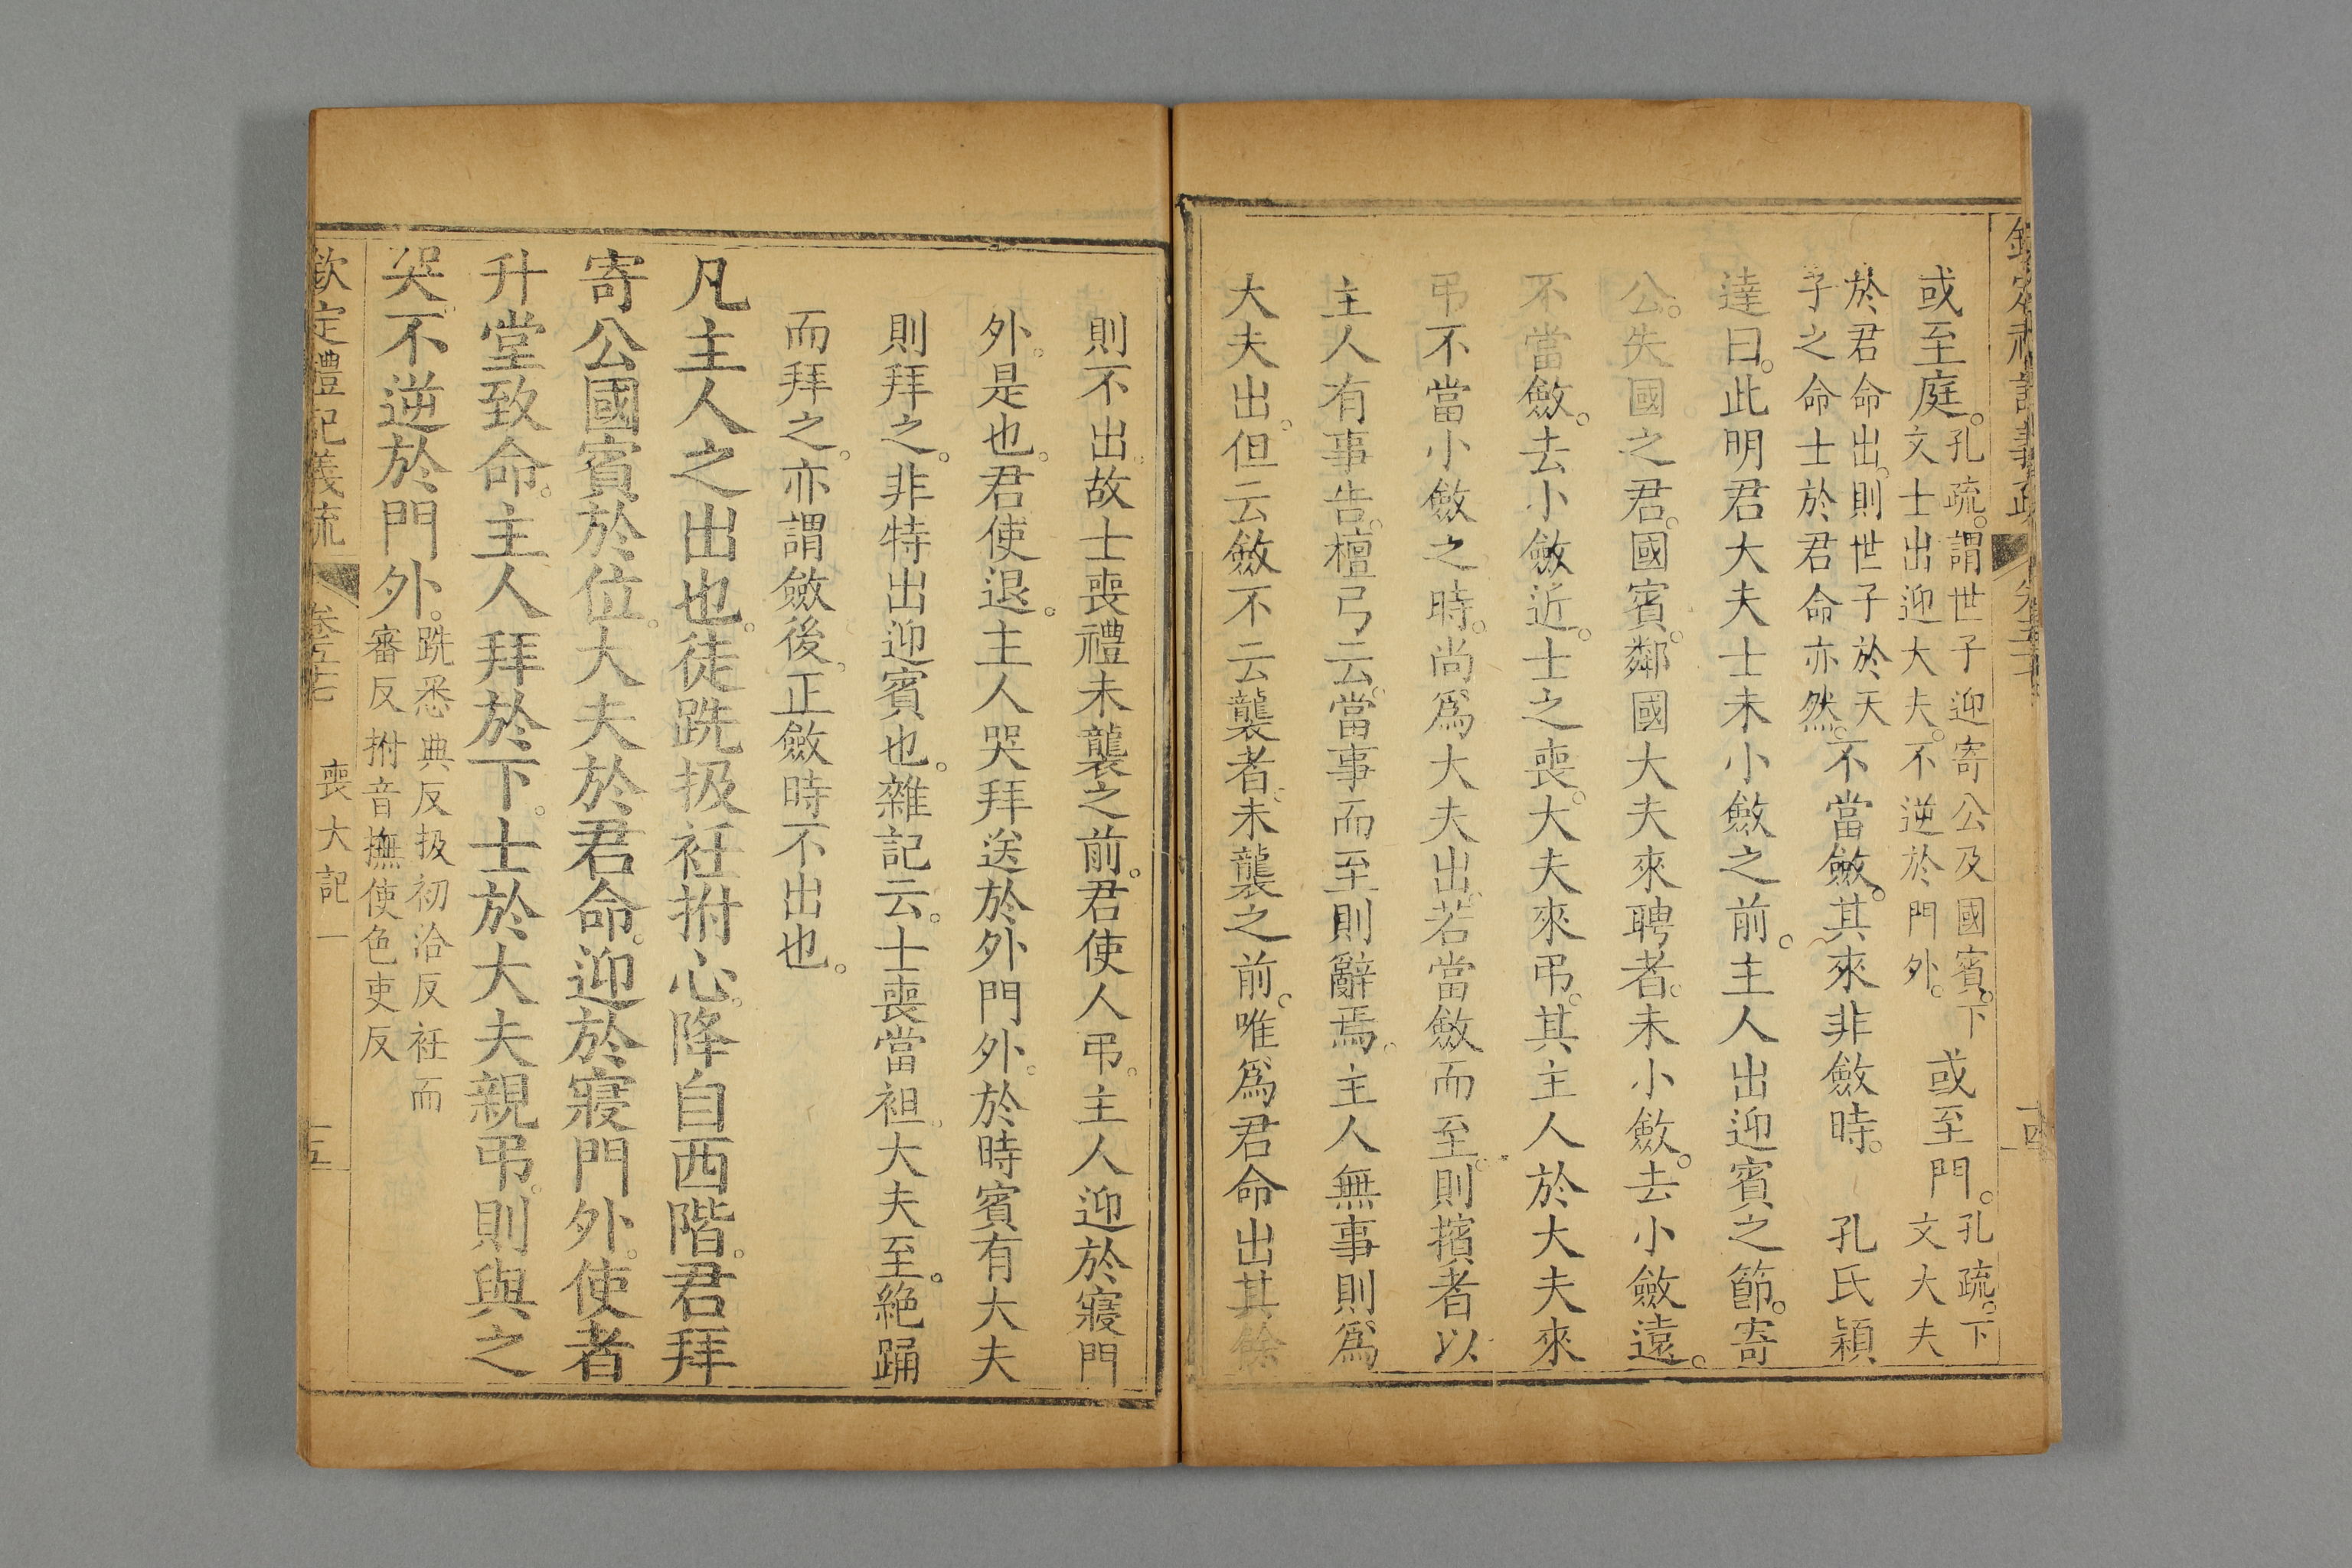 或至庭。孔疏。謂世子迎寄公及國賓。下
文士出迎大夫。不逆於門外。或至門。孔疏。下
文大夫
於君命出。則世子於天
子之命士於君命亦然。不當斂。其來非斂時。 孔氏穎
達曰。此明君大夫士未小斂之前。主人出迎賓之節。寄
公。失國之君。國賓。鄰國大夫來聘者。未小斂。去小斂遠。
不當斂。去小斂近。士之喪。大夫來弔。其主人於大夫來
弔不當小斂之時。尚爲大夫出。若當斂而至。則擯者以
主人有事告。檀弓云。當事而至則辭焉。主人無事則爲
大夫出。但云斂不云襲者。未襲之前。唯爲君命出其餘
則不出。故士喪禮未襲之前。君使人弔。主人迎於寢門
外。是也。君使退。主人哭拜送於外門外。於時賓有大夫
則拜之。非特出迎賓也。雜記云。士喪當袒。大夫至。絕踊
而拜之。亦謂斂後。正斂時不出也。
凡主人之出也。徒跣扱衽拊心。降自西階。君拜
寄公國賓於位。大夫於君命。迎於寢門外。使者
升堂致命。主人拜於下。士於大夫親弔。則與之
哭。不逆於門外。跣悉典反扱初洽反衽而
審反拊音撫使色吏反
欽定禮記義疏 卷五十七 喪大記一 十五